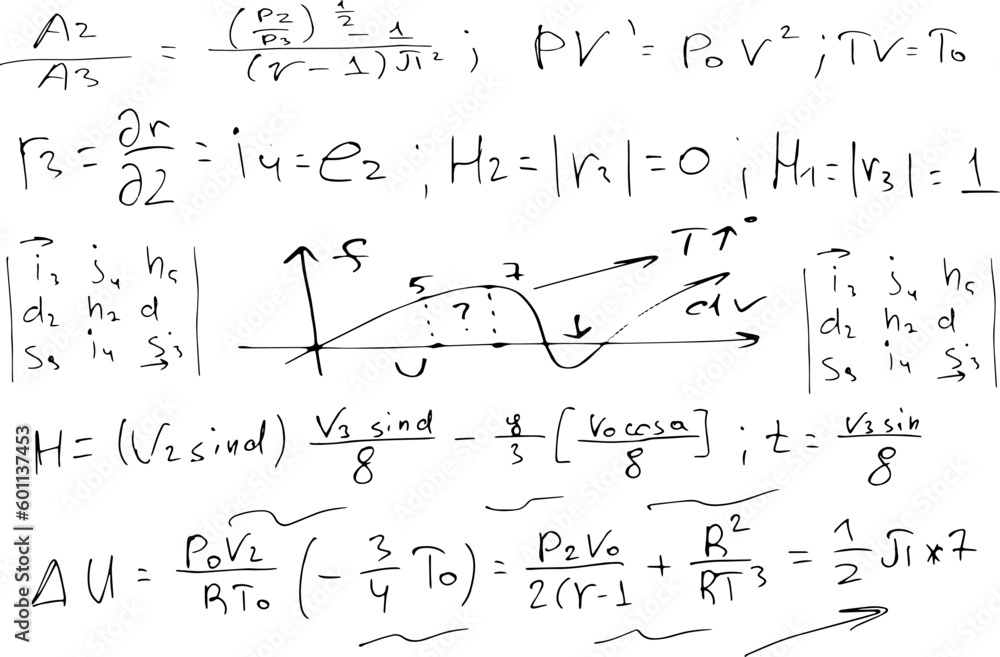 A2/A3 = ((P2/P3)^1/2 - 1)/((r - 1)π²) ; PV' = P₀V² ; TV = T₀
r₃ = ∂r/∂2 = i₄ = e₂ ; H₂ = |r₂| = 0 ; H₁ = |r₃| = 1
f
T↑°
5 7
?
d1v
U
i₃ j₄ h₅
d₂ h₂ d
S₉ i₄ S₃
i₃ j₄ h₅
d₂ h₂ d
S₉ i₄ S₃
H = (V₂ sind) V₃ sind/8 - 8/3 [V₀ cosa/8] ; t = V₃ sin/8
ΔU = P₀V₂/RT₀ (- 3/4 T₀) = P₂V₀/2(r-1 + R²/RT³ = 1/2 π * 7
Adobe Stock | #601137453